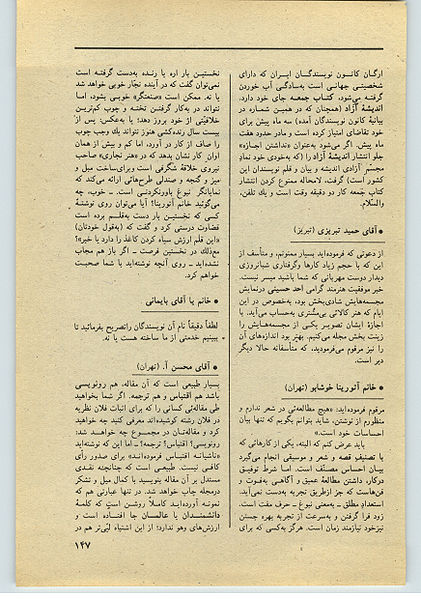 ارگان کانون نویسندگان ایران که دارای
شخصیتی جهانی است به‌سادگی آب خوردن
گرفته می‌شود، کتاب جمعه جای خود دارد.
اندیشهٔ آزاد (همچنان که در همین شماره در
بیانیهٔ کانون نویسندگان آمده) سه ماه پیش برای
خود تقاضای امتیاز کرده است و مادر حدود هفت
ماه پیش. اگر می‌شود به‌عنوان «نداشتن اجازه»
جلو انتشار اندیشهٔ آزاد را (که به‌خودی خود نمادِ
مجسّم آزادی اندیشه و بیان و قلم نویسندان این
کشور است) گرفت، لامحاله ممنوع کردن انتشار
کتاب جمعه کار دو دقیقه وقت است و یك تلفن.
والسّلام.
● آقای حمید تبریزی (تبریز)
از دعوتی که فرموده‌اید بسیار ممنونم، و متأسف از
این که با حجم زیاد کارها وگرفتاری شبانروزی
دیدار دوست مهربانی که شما باشید میسر نیست.
خبر موفقیت هنرمند گرامی احد حسینی درنمایش
مجسمه‌هایش شادی‌بخش بود، به‌خصوص در این
ایام که هنر کالائی بی‌مُشتری به‌حساب می‌آید. با
اجازهٔ ایشان تصویر یکی از مجسمه‌هایش را
زینت بخش مجله می‌کنیم. بهتر بود اندازه‌های آن
را نیز مرقوم می‌فرمودید، که متأسفانه حالا دیگر
دیر است.
● خانم آتورینا خوشابو (تهران)
مرقوم فرموده‌اید: «هیچ مطالعه‌ئی در شعر ندارم و
منظورم از نوشتن، شاید بتوانم بگویم که تنها بیان
احساسات خود است.»
باید عرض کنم که البته، یکی از کارهائی که
با تصنیف قصه و شعر و موسیقی انجام می‌گیرد
بیان احساس مصنّف است. اما شرط توفیق
درکار، داشتن مطالعهٔ عمیق و آگاهی به‌فوت و
فن‌هاست که جز ازطریق تجربه به‌دست نمی‌آید.
استعدادِ مطلق ـ به‌معنی نبوغ ـ حرف مفت است.
زود فرا گرفتن و به‌سرعت از تجربه بهره جستن
نیزخود نیازمند زمان است. هرگز به‌کسی که برای
نخستین بار اره یا رنده به‌دست گرفته است
نمی‌توان گفت که در آینده نجّار خوبی خواهد شد
یا نه. ممکن است «صنعتگر» خوبی بشود، اما
نتواند در به‌کار گرفتن تخته و چوب کم‌ترین
خلاقیّتی از خود بروز دهد؛ یا به‌عکس: پس از
بیست سال رنده‌کشی هنوز نتواند یك وجب چوب
را صاف از کار در آورد، اما کم و بیش از همان
اوان کار نشان بدهد که در «هنر نجاری» صاحب
نیروی خلاقهٔ شگرفی است وبرای‌ساخت مبل و
میز و گنجه و صندلی طرح‌هائی ارائه می‌کند که
نمایانگر نبوغ باورنکردنی است. ـ خوب، چه
می‌گوئید خانم آتورینا؟ آیا می‌توان روی نوشتهٔ
کسی که نخستین بار دست به‌قلم برده است
قضاوت درستی کرد و گفت که (به‌قول خودتان)
«این قلم ارزش سیاه کردن کاغذ را دارد یا خیر»؟
معذلك در نخستین فرصت ـ اگر باز هم مجاب
نشده‌اید ـ روی آنچه نوشته‌اید با شما صحبت
خواهم کرد.
● خانم یا آقای بایمانی
لطفاً دقیقاً نام آن نویسندگان راتصریح بفرمائید تا
ببینیم خدمتی از ما ساخته هست یا نه.
● آقای محسن آ. (تهران)
بسیار طبیعی است که آن مقاله، هم رونویسی
باشد هم اقتباس و هم ترجمه. اگر شما بخواهید
طی مقاله‌ئی کسانی را که برای اثبات فلان نظریه
در فلان رشته کوشیده‌اند معرفی کنید چه خواهید
کرد و مقاله‌تان در مجموع چه خواهد شد:
رونویسی؟ اقتباس؟ ترجمه؟ ـ اما این که نوشته‌اید
«ناشیانه اقتباس فرموده‌اند» برای صدور رأی
کافی نیست. طبیعی است که چنانچه نقدی
مستدل بر آن مقاله بنویسید با کمال میل و تشکر
درمجله چاپ خواهد شد. در تنها عبارتی هم که
نمونه آورده‌اید کاملاً روشن است که کلمهٔ
دانشمندان با عالمان جا افتاده است و
ارزش‌های وهو ندارد؛ از این اشتباه لُپّی‌تر هم در
۱۴۷